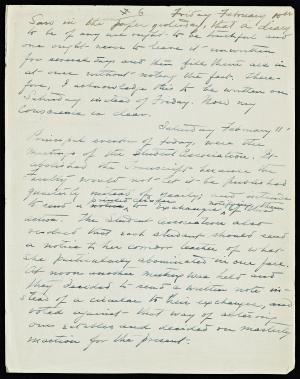 6 Friday February 10th
Saw in the paper yesterday that a diary
to be of any use ought to be truthful and
one ought never to leave it unwritten
for several days and then fill them all in
at once without noting the fact. There-
fore, I acknowledge this to be written on
Saturday instead of Friday. Now my
conscience is clear.
Saturday February 11th
Principal events of today, were the
meetings of the Student Association. It
abolished the Transcript because the
Faculty would not let it be published
quarterly instead of yearly, and
to send a notice to exchanges of their
action. The Student association also
resolved that each student should send
a notice to her corridor teacher of what
she particularly abominated in one place.
At noon another meeting was held and
they decided to send a written note in-
stead of a circular to their exchanges, and
voted against that way of
our and decided on masterly
inaction for the present.